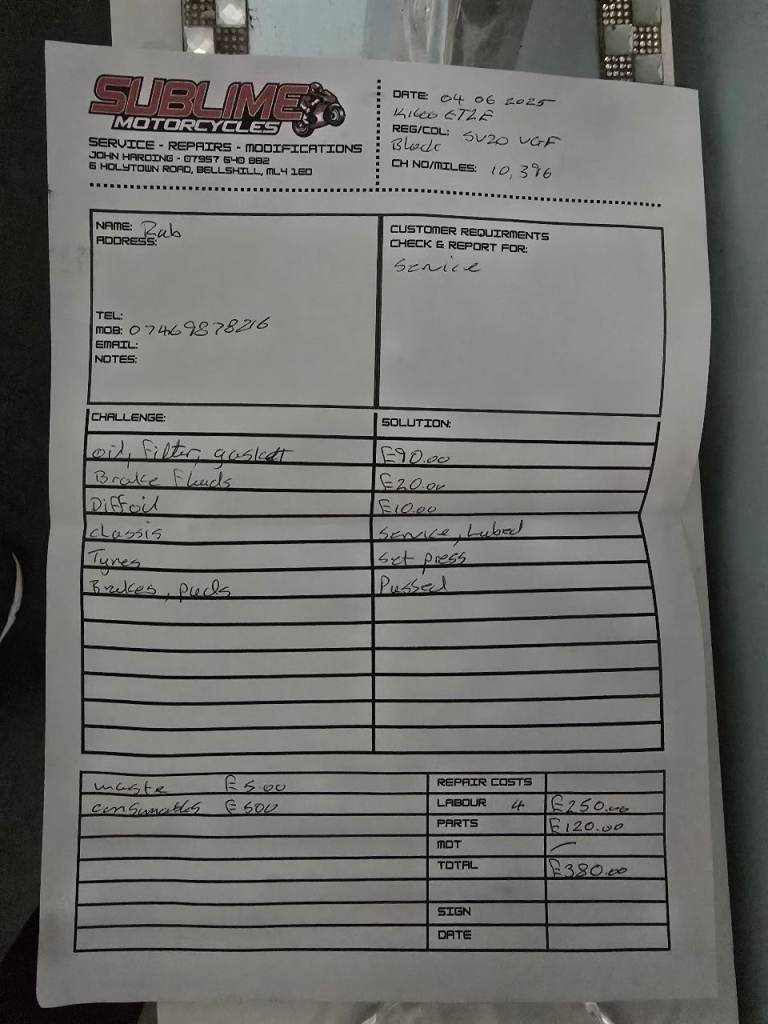 SUBLIME
MOTORCYCLES
SERVICE - REPAIRS - MODIFICATIONS
JOHN HARDING - 07957 640 882
6 HOLYTOWN ROAD, BELLSHILL, ML4 1ED
DATE: 04 06 2025
K1600 GTLE
REG/COL: SV20 VGF
Black
CH NO/MILES: 10,396
NAME: Rab
ADDRESS:
TEL:
MOB: 07469878216
EMAIL:
NOTES:
CUSTOMER REQUIRMENTS
CHECK & REPORT FOR:
Service
CHALLENGE: SOLUTION:
oil, filter, gaskett £90.00
Brake Fluids £20.00
Diffoil £10.00
classis Service, Lubed
Tyres Set press
Brakes, pads Passed
waste £5.00 REPAIR COSTS
consumables £500 LABOUR 4 £250.00
PARTS £120.00
MOT –
TOTAL £380.00
SIGN
DATE